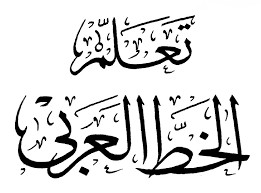 تعلّم
الخطّ العربي